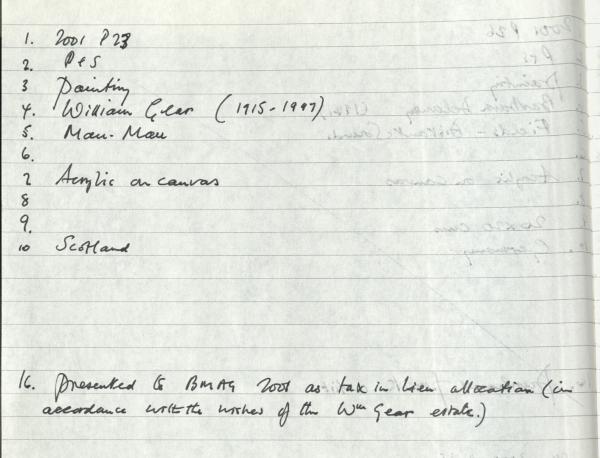 1. 2001 P23
2. P&S
3 Painting
4. William Gear (1915-1997)
5. Mau-Mau
6.
7 Acrylic on canvas
8
9.
10 Scotland
16. Presented to BMAG 2001 as tax in lieu allocation (in
accordance with the wishes of the Wm Gear estate.)